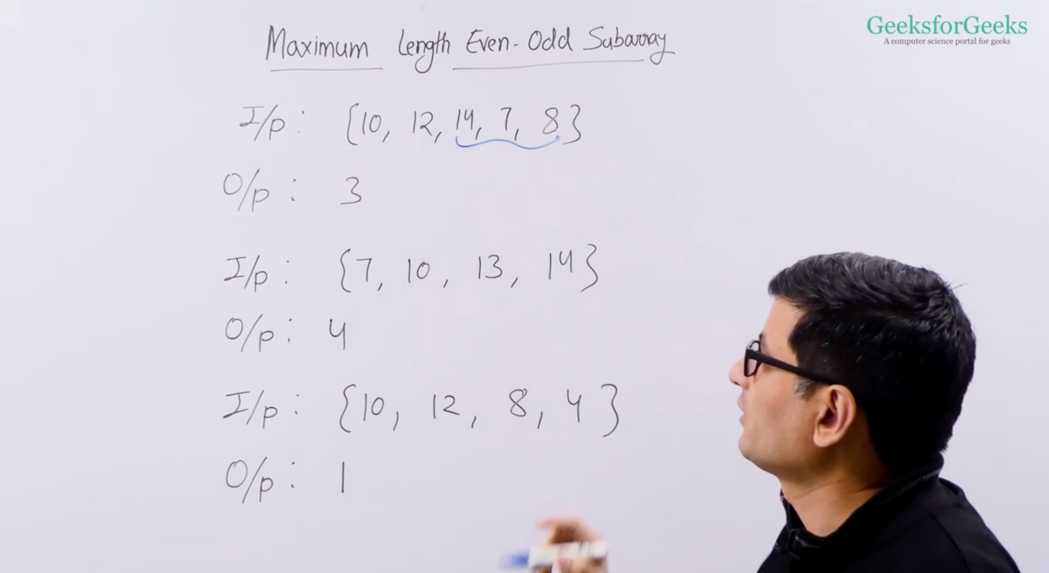 GeeksforGeeks
A computer science portal for geeks
Maximum Length Even-Odd Subarray
I/p : {10, 12, 14, 7, 8}
O/p : 3
I/p : {7, 10, 13, 14}
O/p : 4
I/p : {10, 12, 8, 4}
O/p : 1